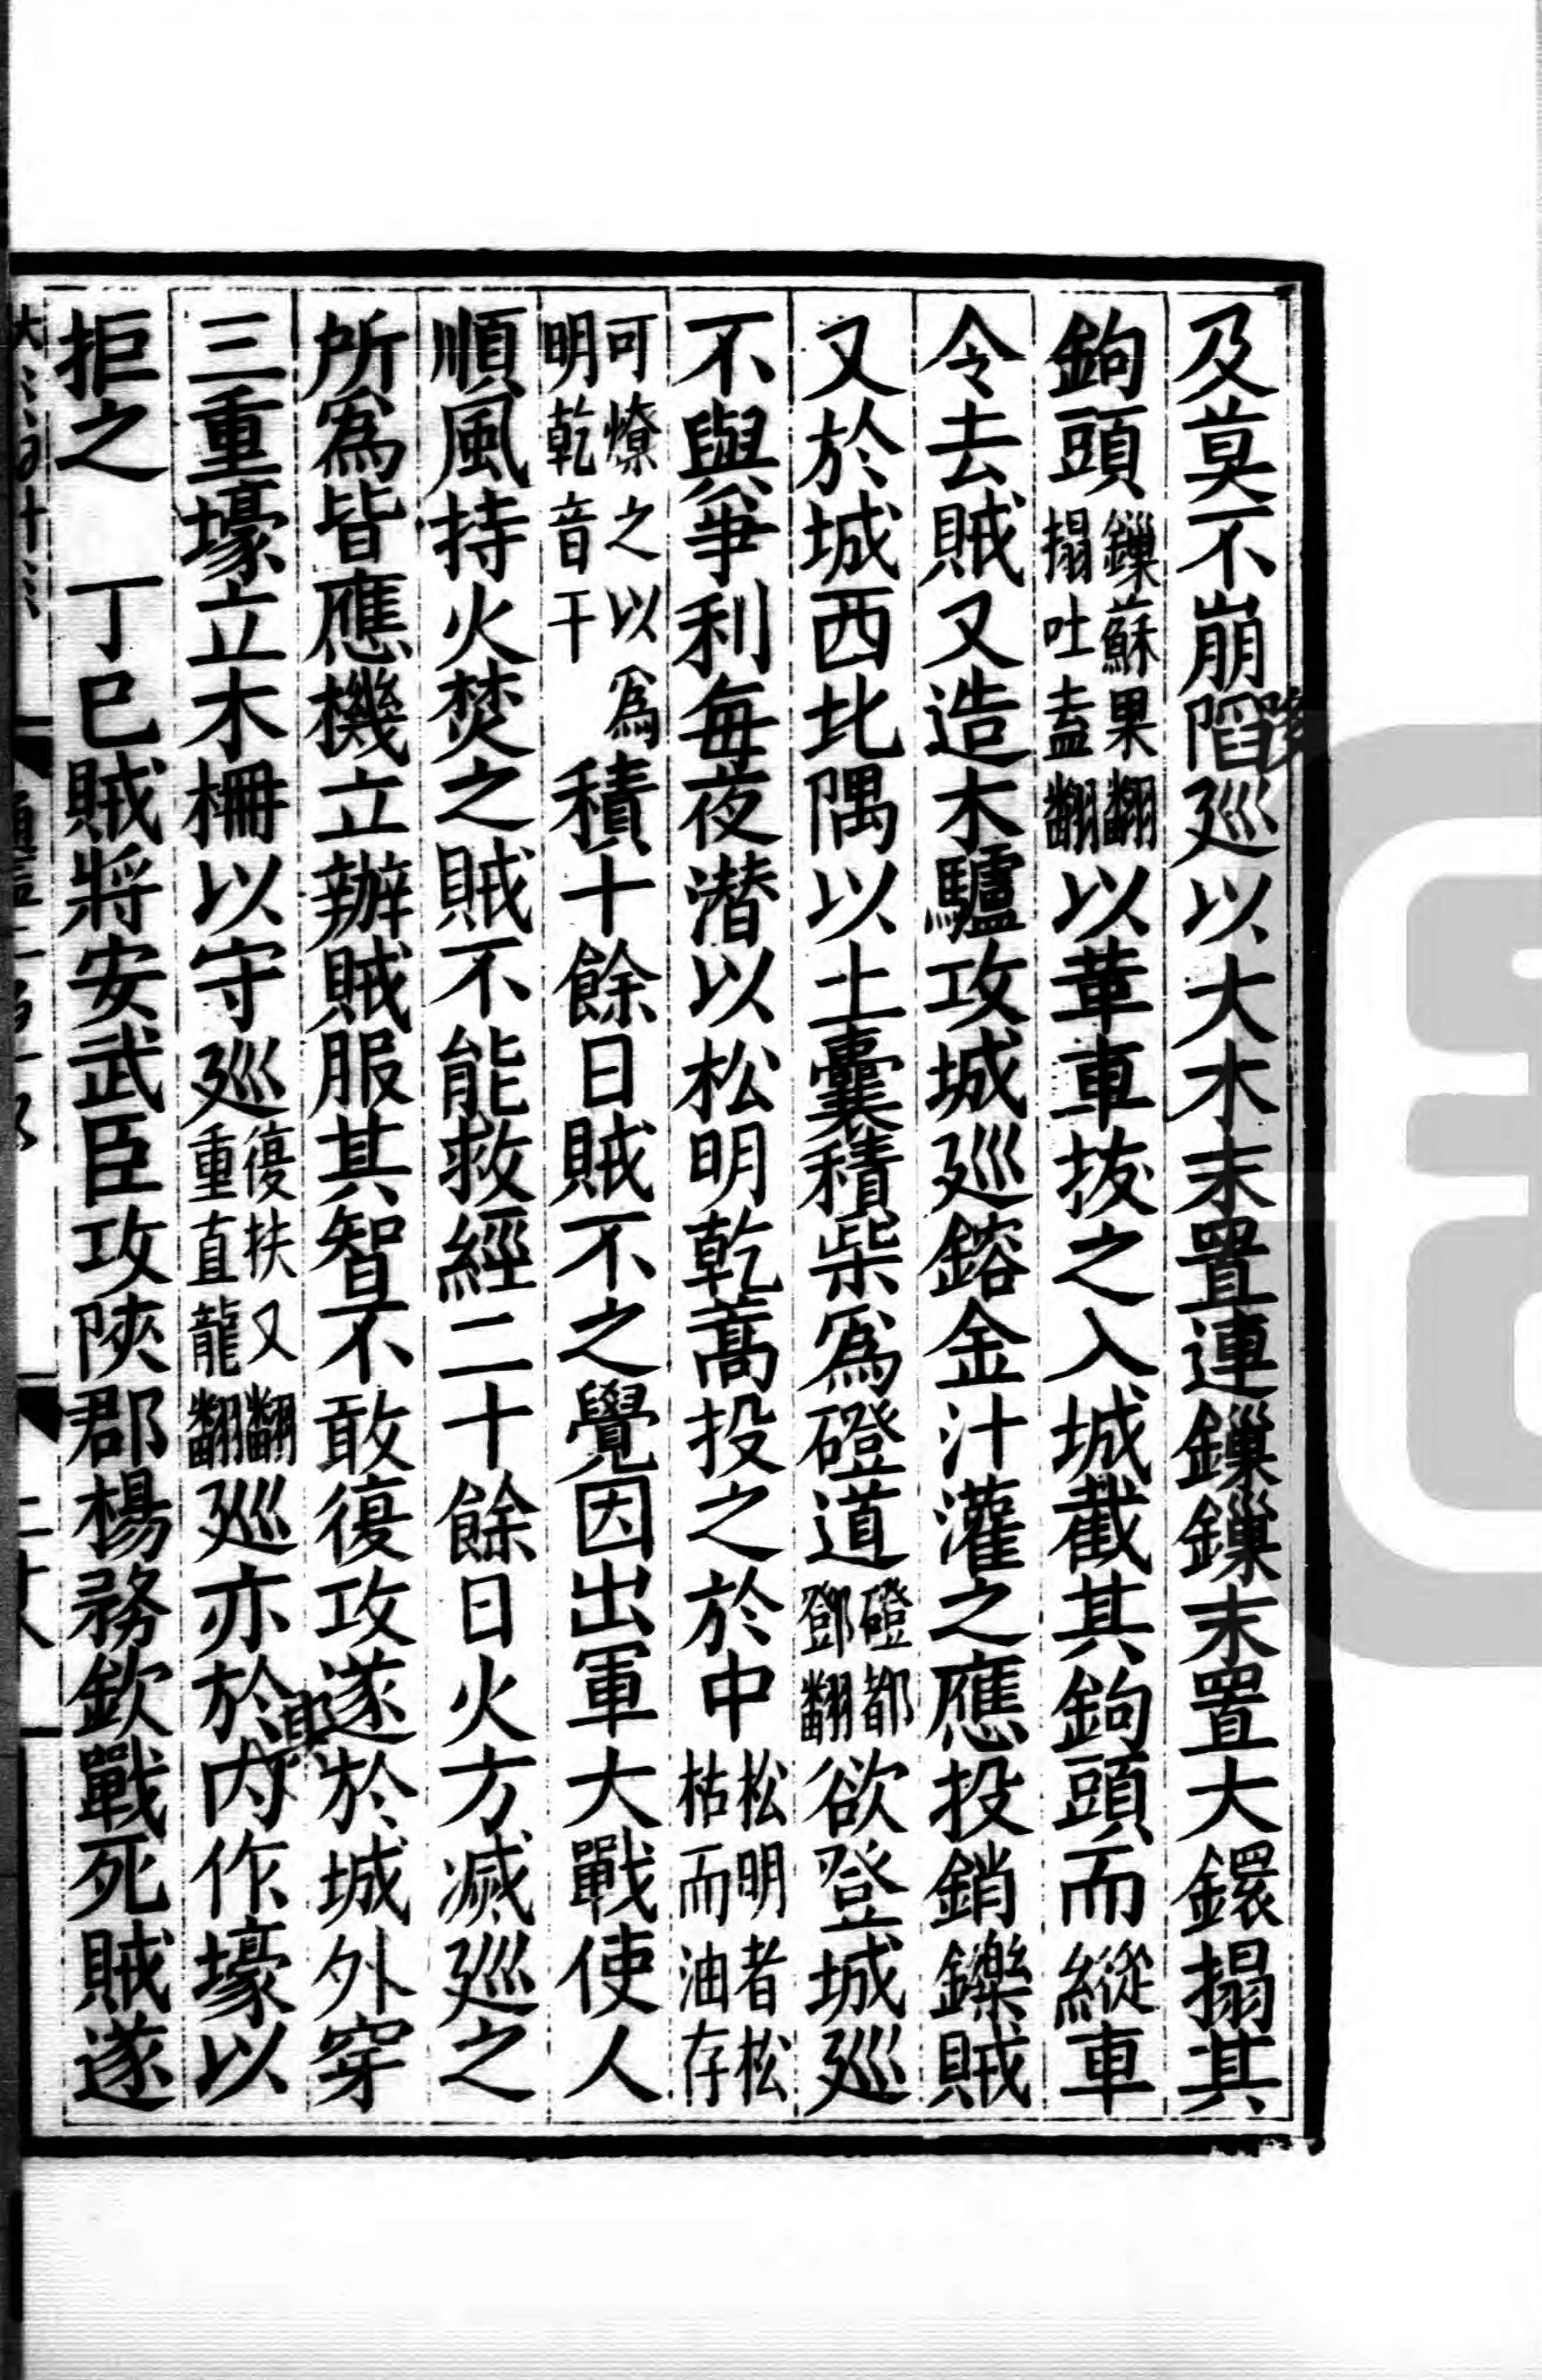 及莫不崩䧟廵以大木末置連鏁鏁末置大鐶搨其
鉤頭鏁蘇果翻搨吐盍翻以革車拔之入城截其鉤頭而縱車
令去賊又造木驢攻城廵鎔金汁灌之應投銷鑠賊
又於城西北隅以土囊積柴爲磴道磴都鄧翻欲登城廵
不與爭利每夜潛以松明乾蒿投之於中松明者松枯而油存
可燎之以爲明乾音干積十餘日賊不之覺因出軍大戰使人
順風持火焚之賊不能救經二十餘日火方滅廵之
所爲皆應機立辦賊服其智不敢復攻遂於城外穿
三重壕立木柵以守廵復扶又翻重直龍翻廵亦於內作壕以
拒之　丁巳賊將安武臣攻陝郡楊務欽戰死賊遂